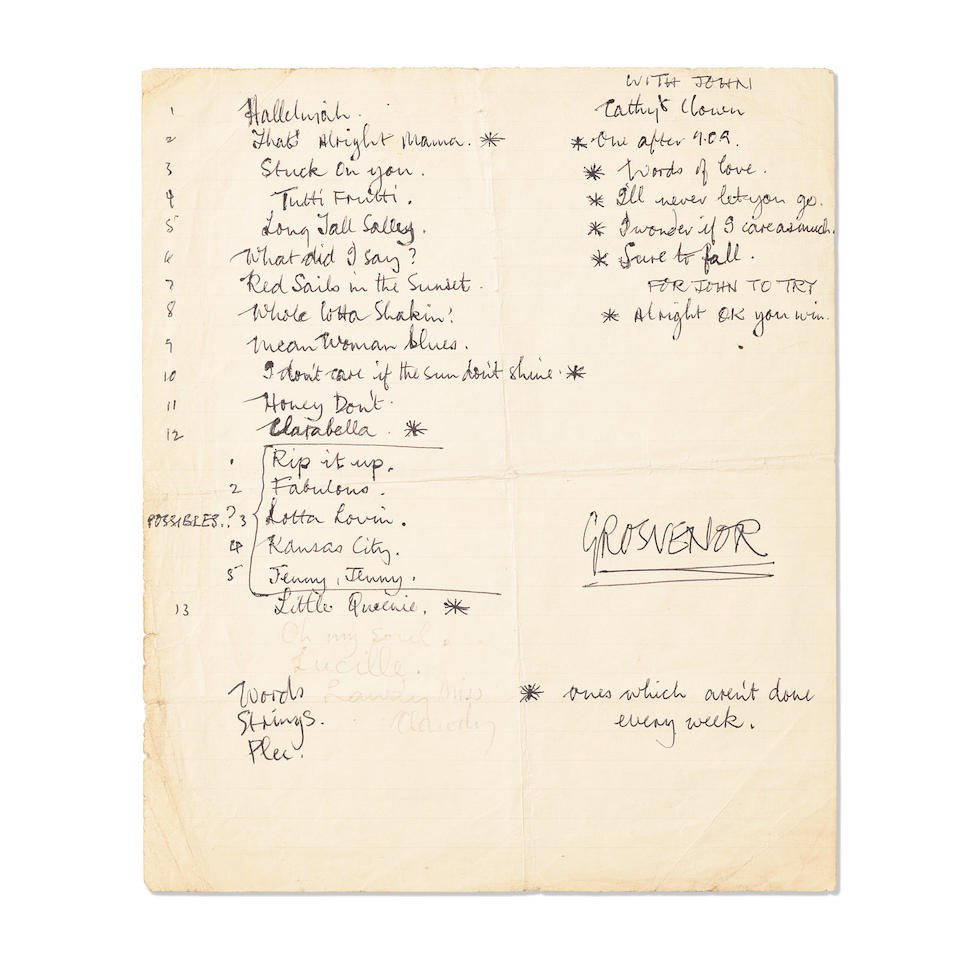 1 Hallelujah.
2 That's Alright Mama. *
3 Stuck On you.
4 Tutti Frutti.
5 Long Tall Salley.
6 What did I say?
7 Red Sails in the Sunset.
8 Whole lotta Shakin!
9 Mean Woman blues.
10 I don't care if the sun don't shine. *
11 Honey Don't.
12 Clarabella. *
POSSIBLES.?
1 Rip it up.
2 Fabulous.
3 Lotta Lovin.
4 Kansas City.
5 Jenny, Jenny.
13 Little Queenie. *
Oh my soul.
Lucille.
Lawdy Miss
Clawdy
Words
Strings.
Plec.
WITH JOHN
Cathy's Clown
* One after 9.09.
* Words of love.
* I'll never let you go.
* I wonder if I care as much.
* Sure to fall.
FOR JOHN TO TRY
* Alright OK you win.
GROSVENOR
* ones which aren't done
every week.